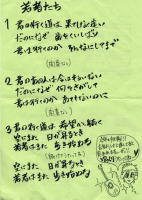 若者たち
1 君の行く道は 果てしなく遠い
だのになぜ 歯をくいしばり
君は行くのか そんなにしてまで
(間奏なし)
2 君のあの人は 今はもういない
だのになぜ 何を探して
君は行くのか あてもないのに
(間奏なし)
3 君の行く道は 希望へと続く
空にまた 日がのぼるとき
若者はまた 歩きはじめる
空にまた 日がのぼるとき
若者はまた 歩きはじめる